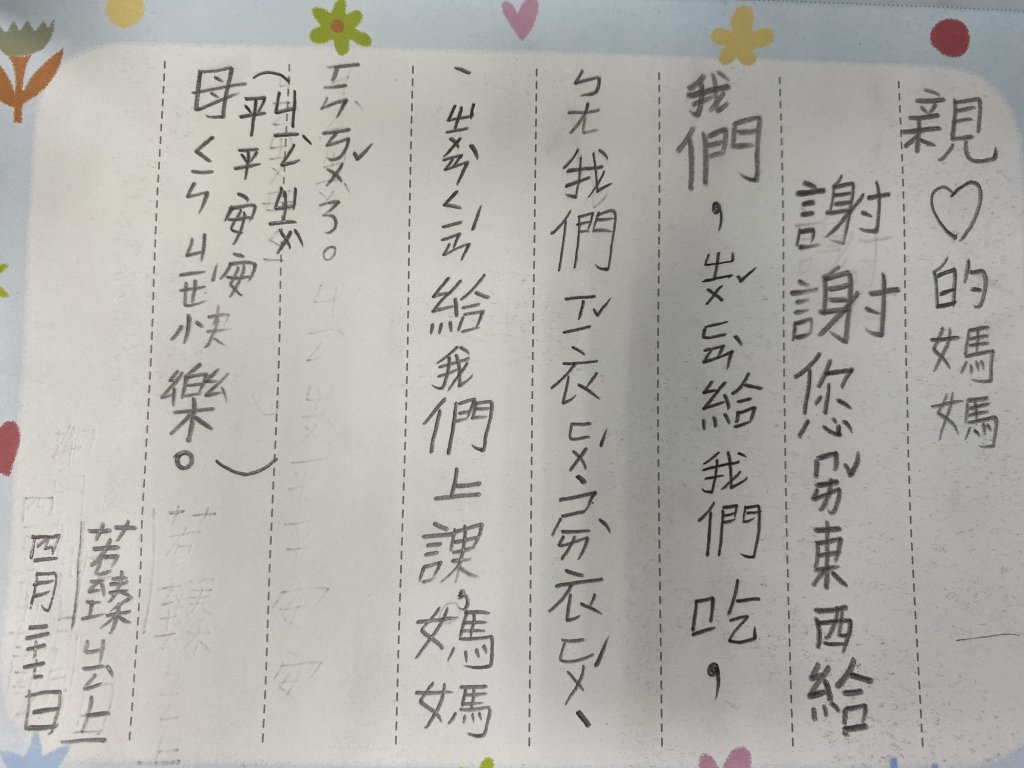 親♡的媽媽
謝謝您ㄇㄞˇ東西給
我們，ㄓㄨˇㄈㄢˋ給我們吃，
ㄅㄤ我們ㄒㄧˇ衣ㄈㄨˊ、衣ㄈㄨˊ、
、ㄓㄨㄢˋㄑㄧㄢˊ給我們上課，媽媽
ㄒㄧㄣㄎㄨˇ。
(ㄐㄧㄥˋㄓㄨˋ
平平安安
母ㄑㄧㄣㄐㄧㄝˊ快樂。)
若臻ㄐㄧㄥ上
四月日